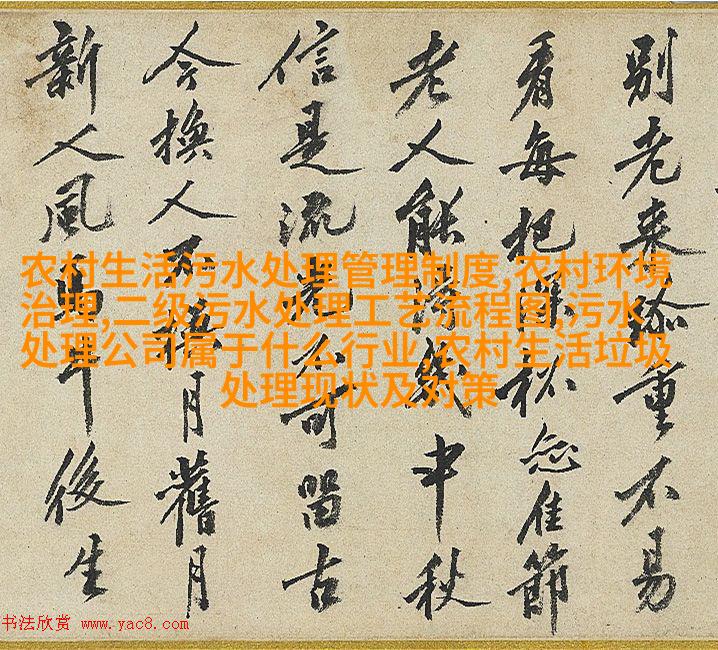 別老来重不易
看每把深杯佳節
老人能得幾中秋
信是流光不可留古
今換人不換月舊月
新人風馬牛後生
农村生活污水处理管理制度,农村环境
治理,二级污水处理工艺流程图,污水
处理公司属于什么行业,农村生活垃圾
处理现状及对策
书法欣赏 www.yac8.com